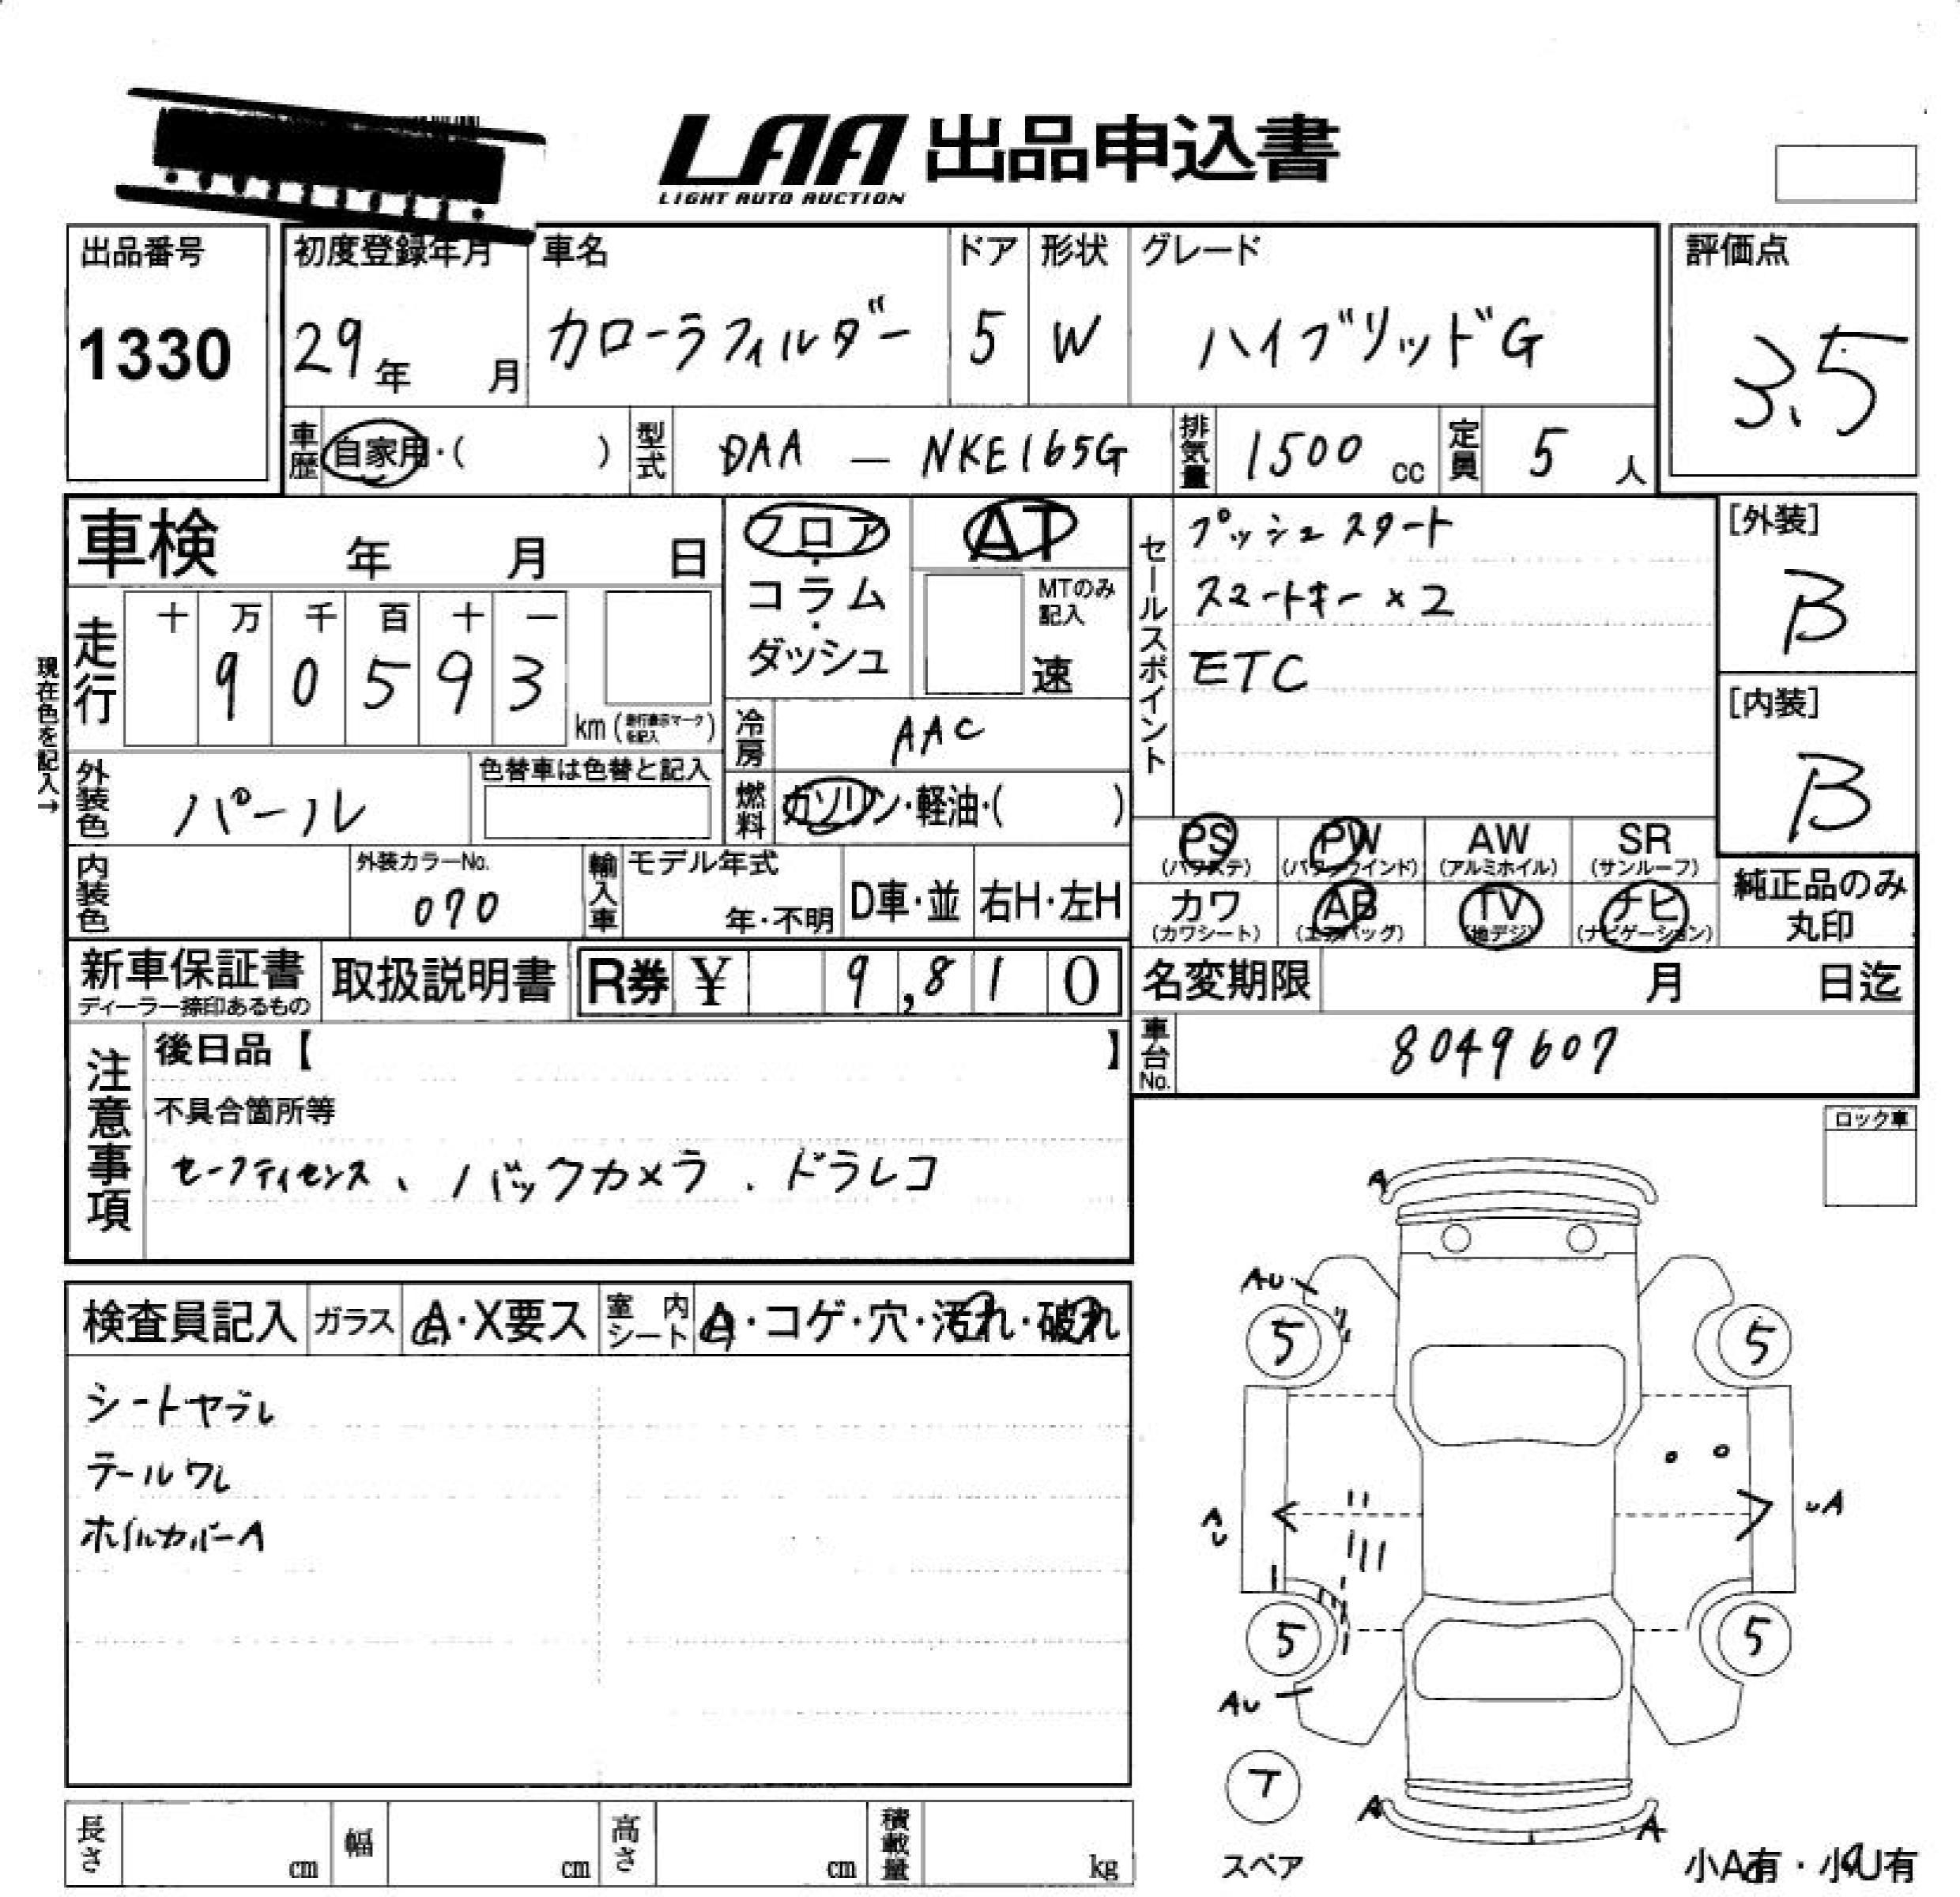 LAA 出品申込書
LIGHT AUTO AUCTION
出品番号
1330
初度登録年月
29年 月
車名
カローラフィルダー
ドア
5
形状
W
グレード
ハイブリッドG
評価点
3.5
車歴
自家用・( )
型式
DAA — NKE165G
排気量
1500 cc
定員
5 人
車検 年 月 日
フロア・コラム・ダッシュ
AT
MTのみ記入
速
セールスポイント
プッシュスタート
スマートキー×2
ETC
[外装]
B
[内装]
B
現在色を記入→
走行
十 万 千 百 十 一
9 0 5 9 3
km (走行表示マークを記入)
冷房
AAC
燃料
ガソリン・軽油・( )
外装色
パール
色替車は色替と記入
内装色
外装カラーNo.
070
輸入車
モデル年式
年・不明
D車・並
右H・左H
PS (パワステ)
PW (パワーウインド)
AW (アルミホイル)
SR (サンルーフ)
カワ (カワシート)
AB (エアバッグ)
TV (地デジ)
ナビ (ナビゲーション)
純正品のみ
丸印
新車保証書
ディーラー捺印あるもの
取扱説明書
R券 ¥ 9,810
名変期限 月 日迄
車台No.
8049607
注意事項
後日品【 】
不具合箇所等
セーフティセンス、バックカメラ.ドラレコ
ロック車
検査員記入
ガラス
A・X要ス
室内シート
A・コゲ・穴・汚れ・破れ
シートヤブレ
テールワレ
ホイルカバーA
A
AU
5
5
AU
UA
5
5
AU
T
スペア
A
A
小A有・小U有
長さ cm
幅 cm
高さ cm
積載量 kg